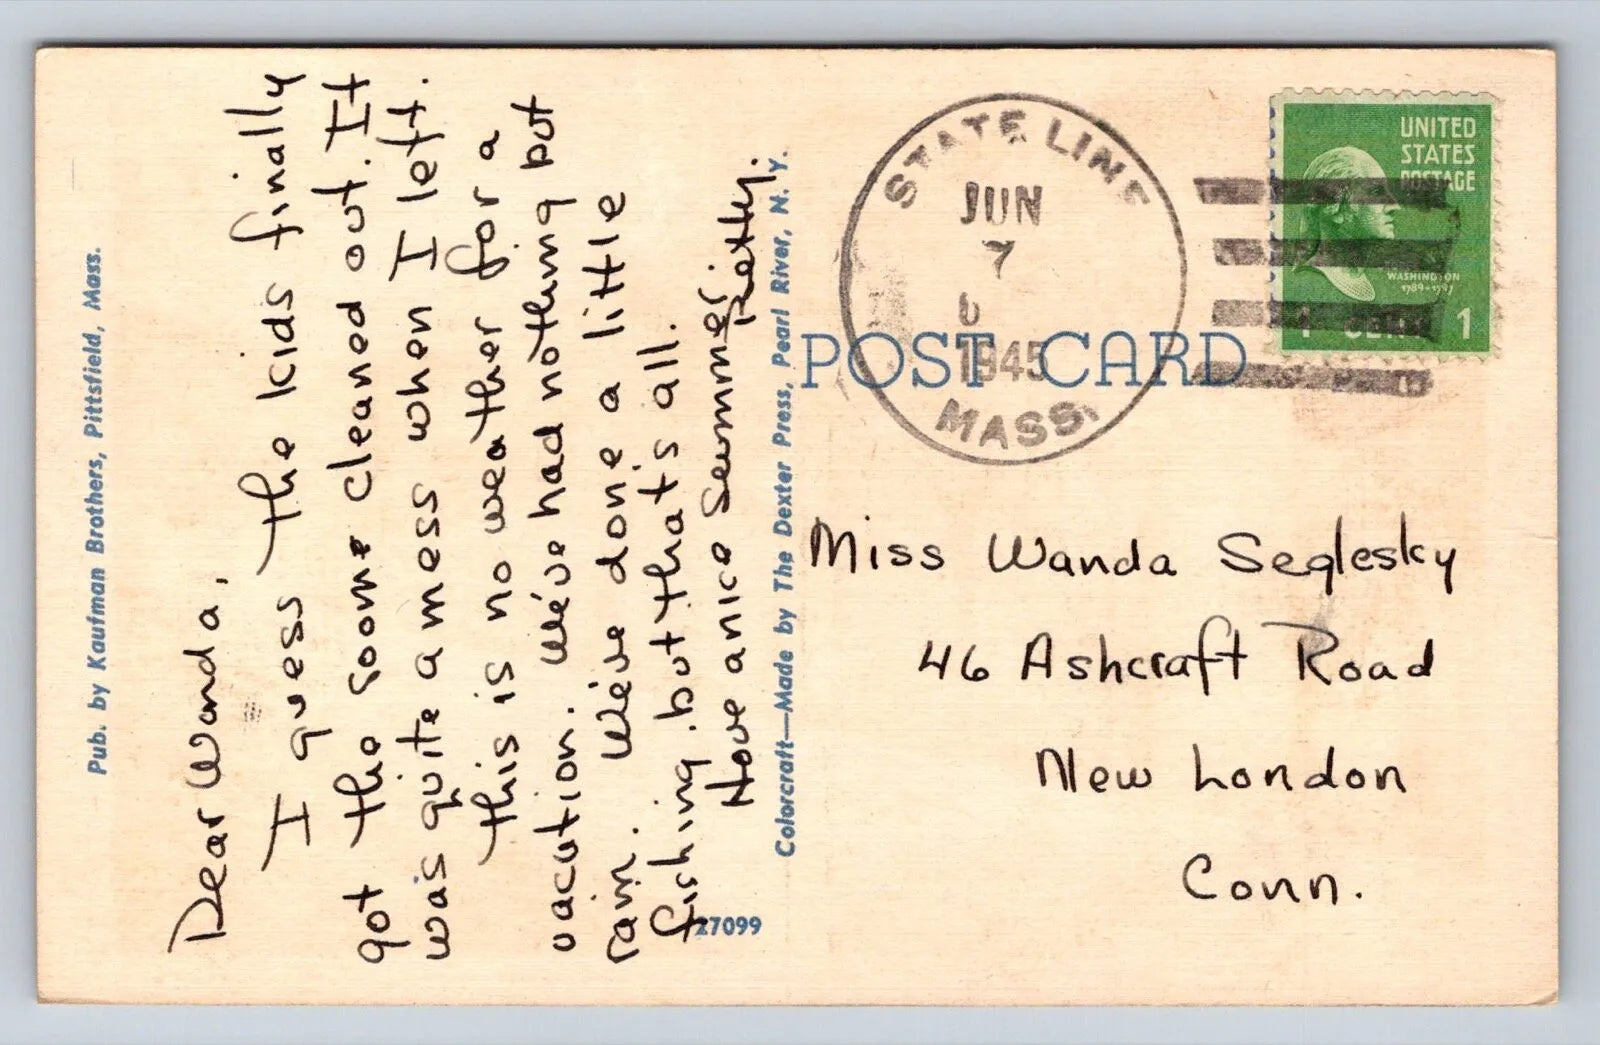 Pub. by Kaufman Brothers, Pittsfield, Mass.
Dear Wanda,
I guess the kids finally
got the soome cleaned out. It
was quite a mess when I left.
This is no weather for a
vacation. We've had nothing but
rain. We've done a little
fishing but that's all.
Have a nice summer,
Betty.
27099
Colorcraft—Made by The Dexter Press, Pearl River, N. Y.
STATE LINE
JUN
7
1945
MASS.
UNITED
STATES
POSTAGE
WASHINGTON
1789-1797
1 CENT 1
POST CARD
Miss Wanda Seglesky
46 Ashcraft Road
New London
Conn.